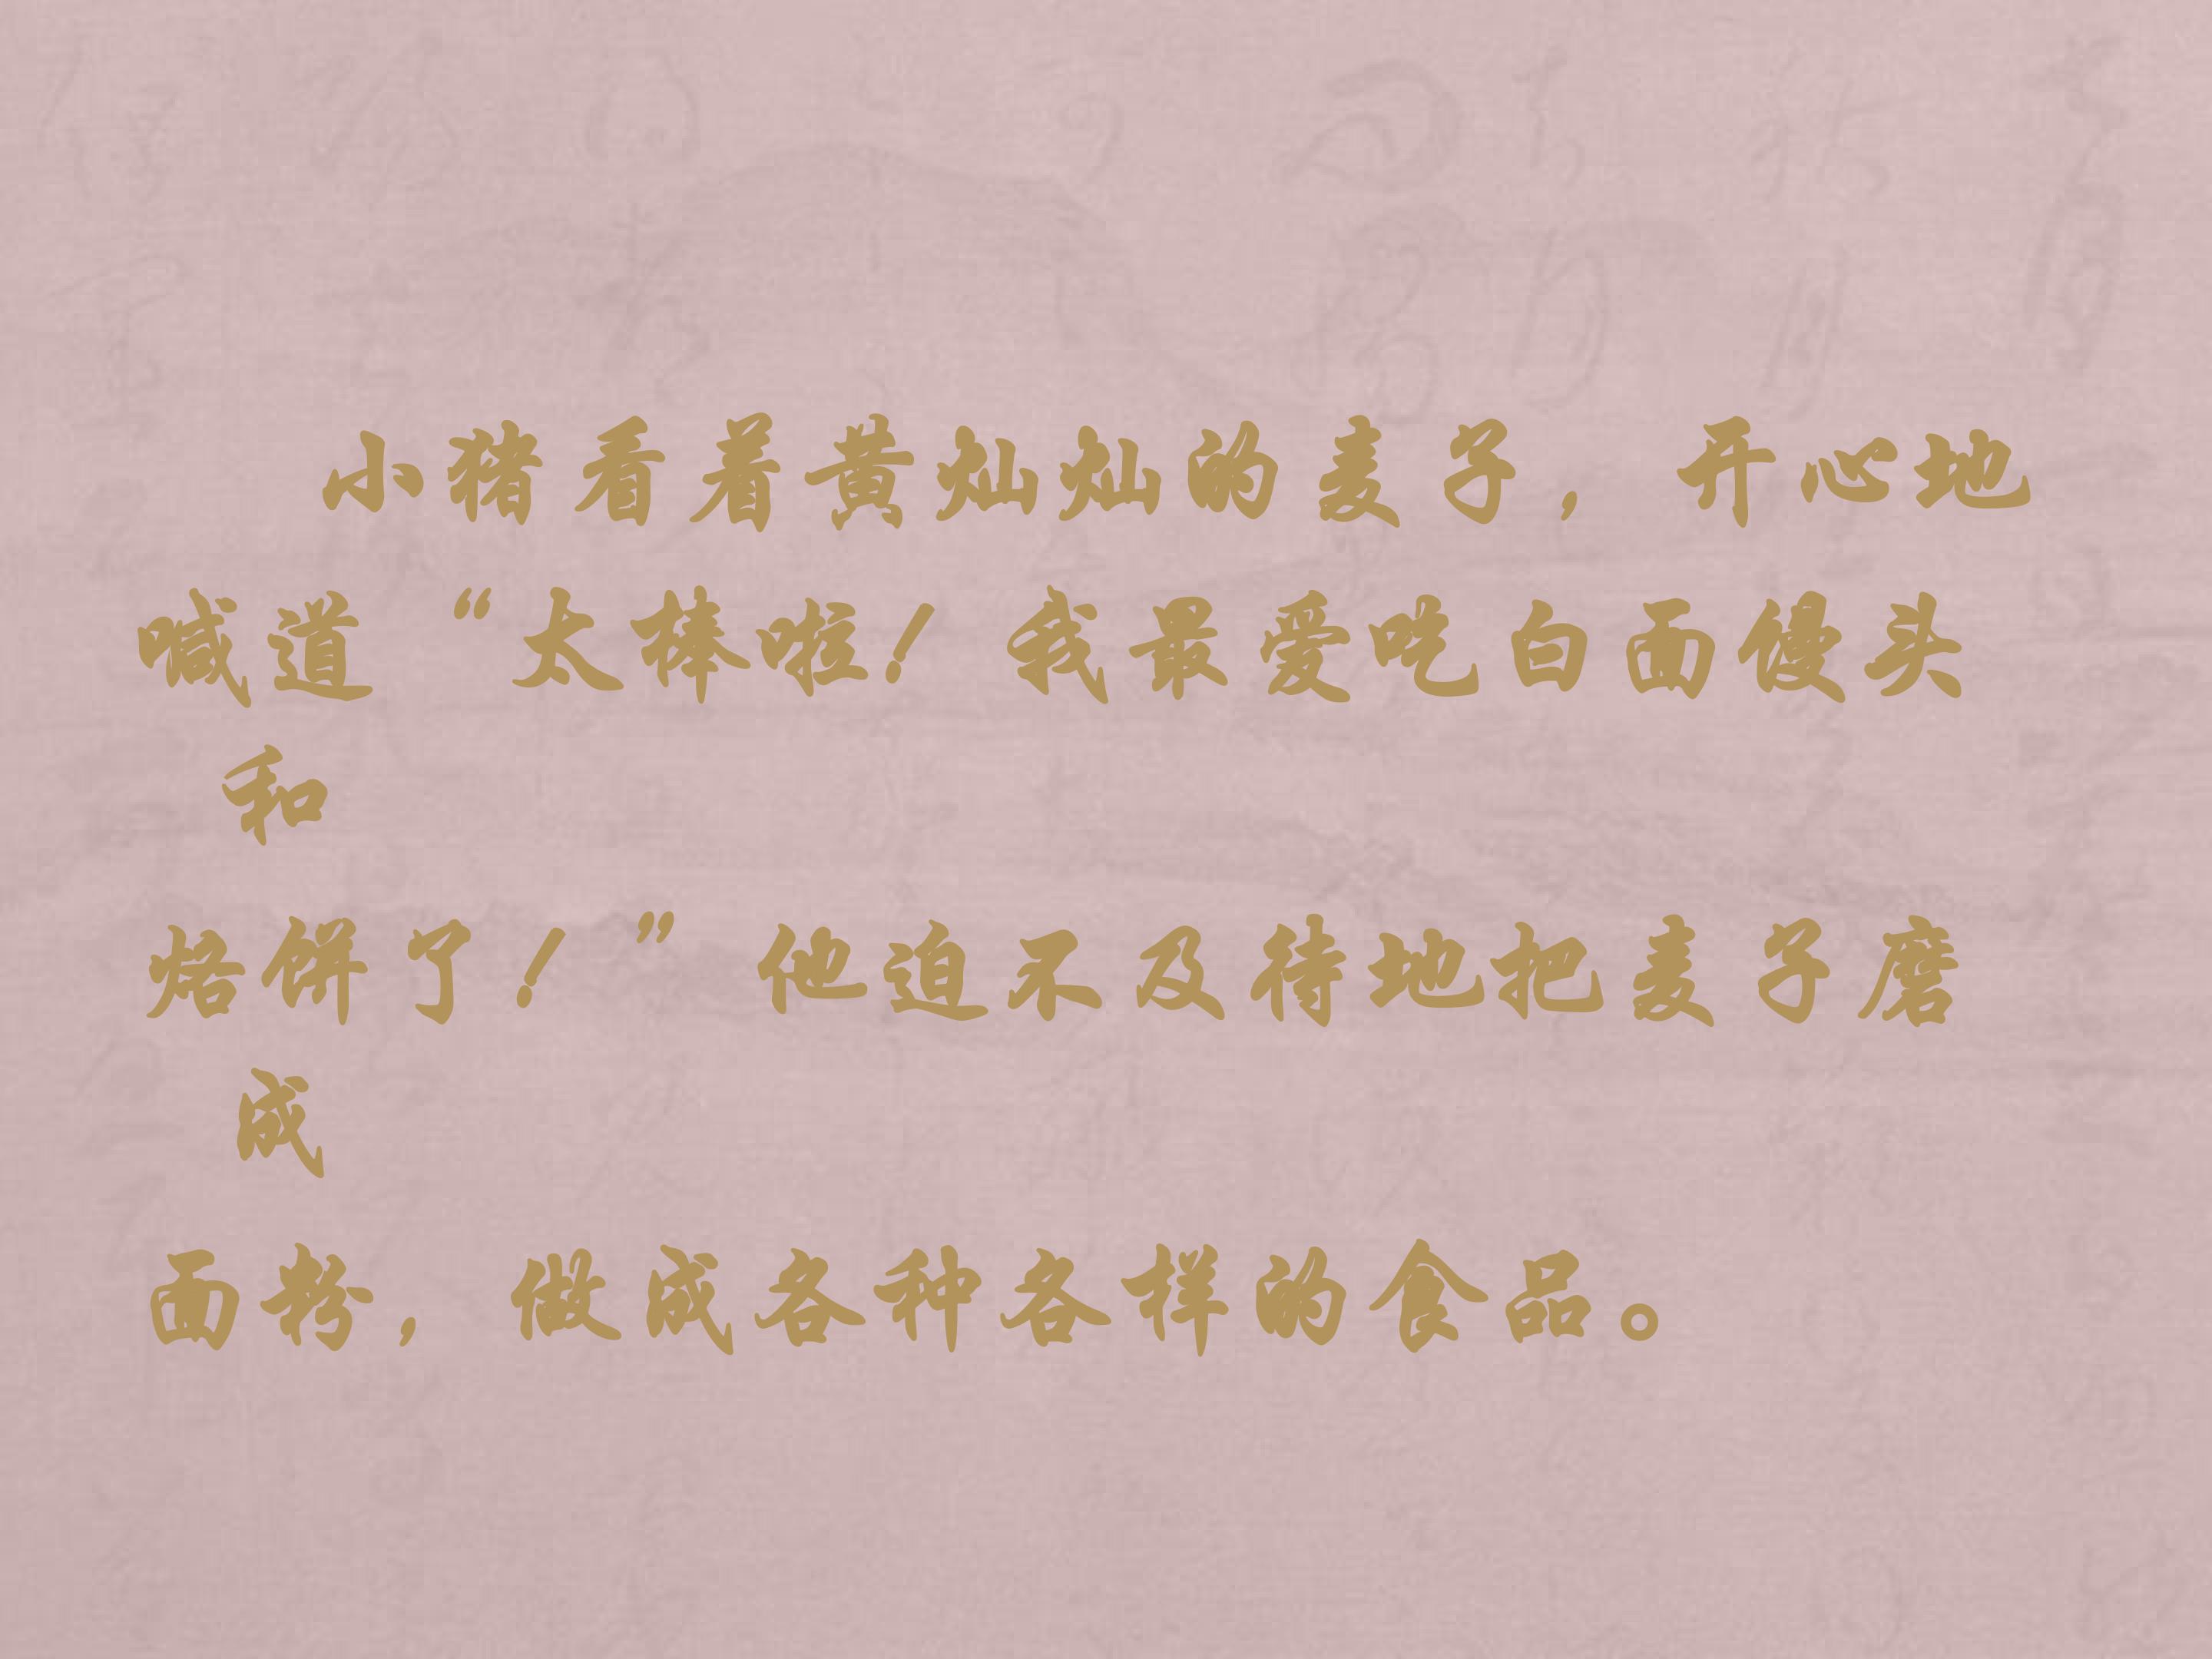 小猪看着黄灿灿的麦子，开心地
喊道“太棒啦！我最爱吃白面馒头
和
烙饼了！”他迫不及待地把麦子磨
成
面粉，做成各种各样的食品。